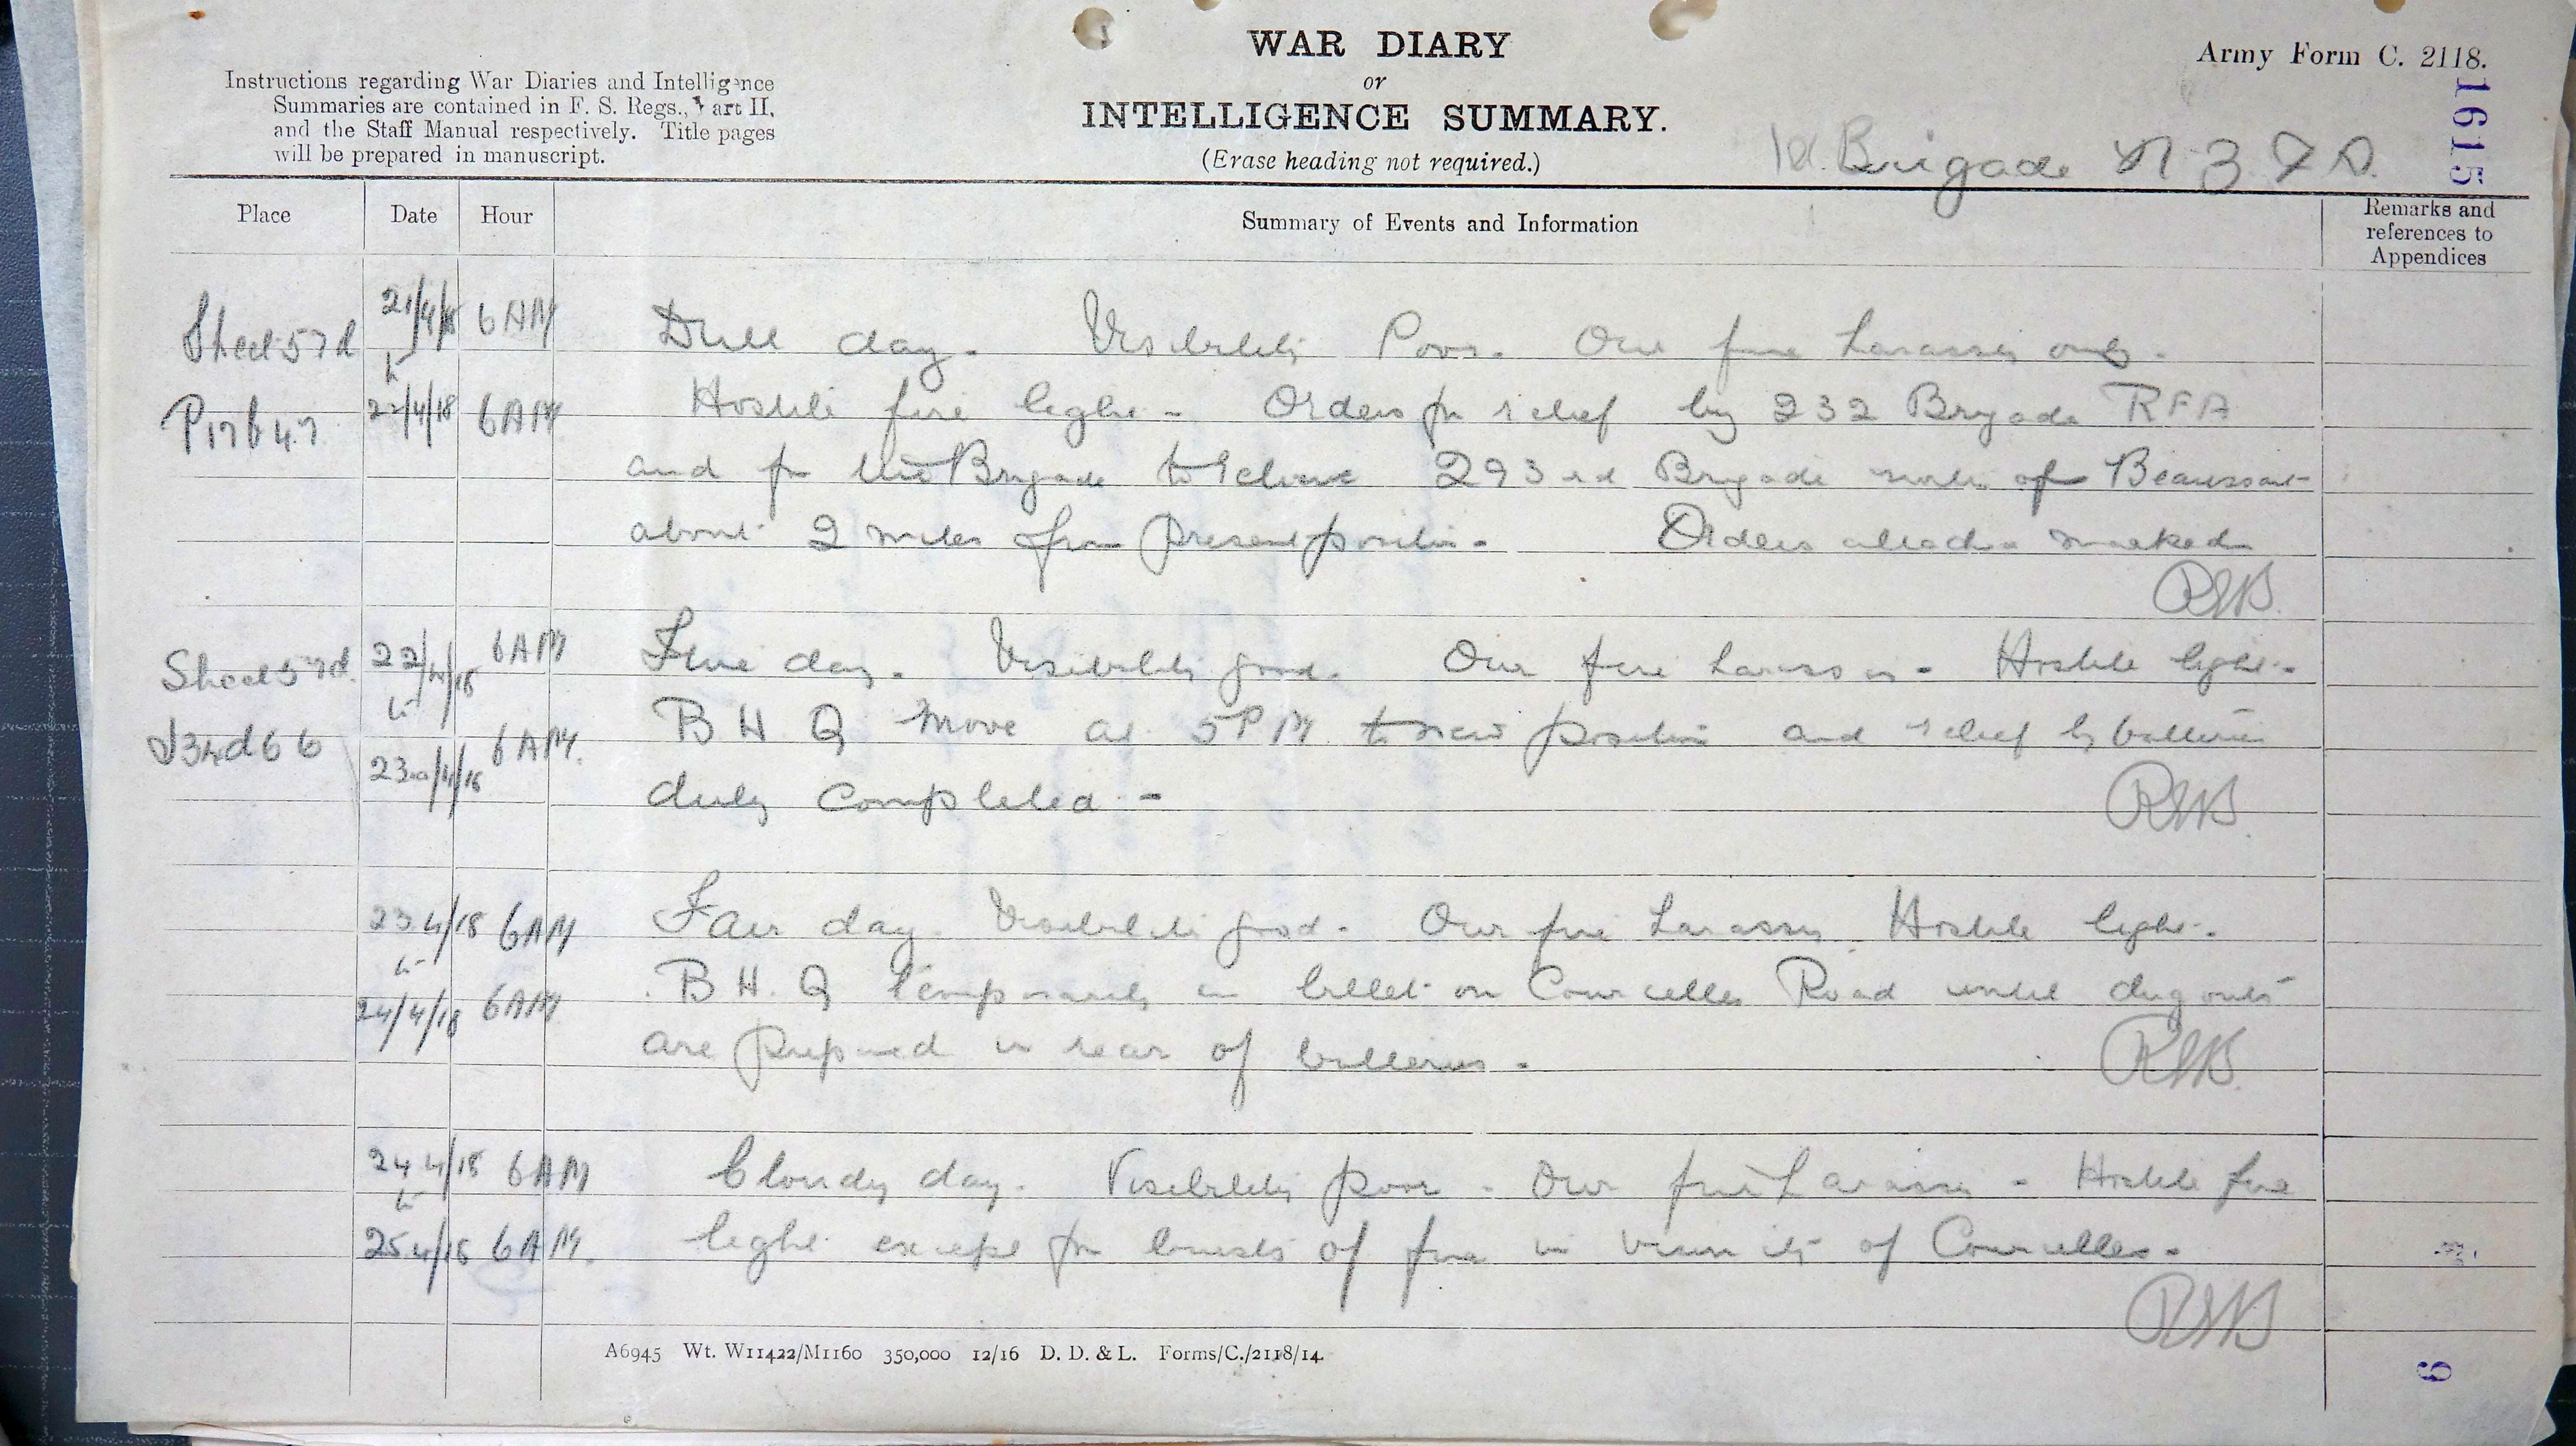 WAR DIARY
or
INTELLIGENCE SUMMARY.
(Erase heading not required.)
Army Form C. 2118.
Instructions regarding War Diaries and Intelligence
Summaries are contained in F. S. Regs., Part II,
and the Staff Manual respectively. Title pages
will be prepared in manuscript.
1st Brigade N Z F A.
1615
Place Date Hour Summary of Events and Information Remarks and
references to
Appendices
Sheet 57d 21/4/18 6 AM Dull day. Visibility Poor. Our fire harassing only.
to
P17b47 22/4/18 6 AM Hostile fire light - Orders for relief by 232 Brigade RFA
and for this Brigade to relieve 293rd Brigade north of Beaussart
about 2 miles from present position. Orders attached marked
Sheet 57d. 22/4/18 6 AM Fine day. Visibility good. Our fire harassing. Hostile light.
to
J34d66 23rd/4/18 6 AM. B H Q move at 5 PM to new position and relief by batteries
duly completed -
23 4/18 6 AM Fair day. Visibility good. Our fire harassing. Hostile light.
to
24/4/18 6 AM B H. Q temporarily in billet on Courcelles Road until dug outs
are prepared in rear of batteries.
24 4/18 6 AM Cloudy day. Visibility poor. Our fire harassing. Hostile fire
to
25 4/18 6 AM. light except for bursts of fire in vicinity of Courcelles.
A6945 Wt. W11422/M1160 350,000 12/16 D. D. & L. Forms/C./2118/14.
6